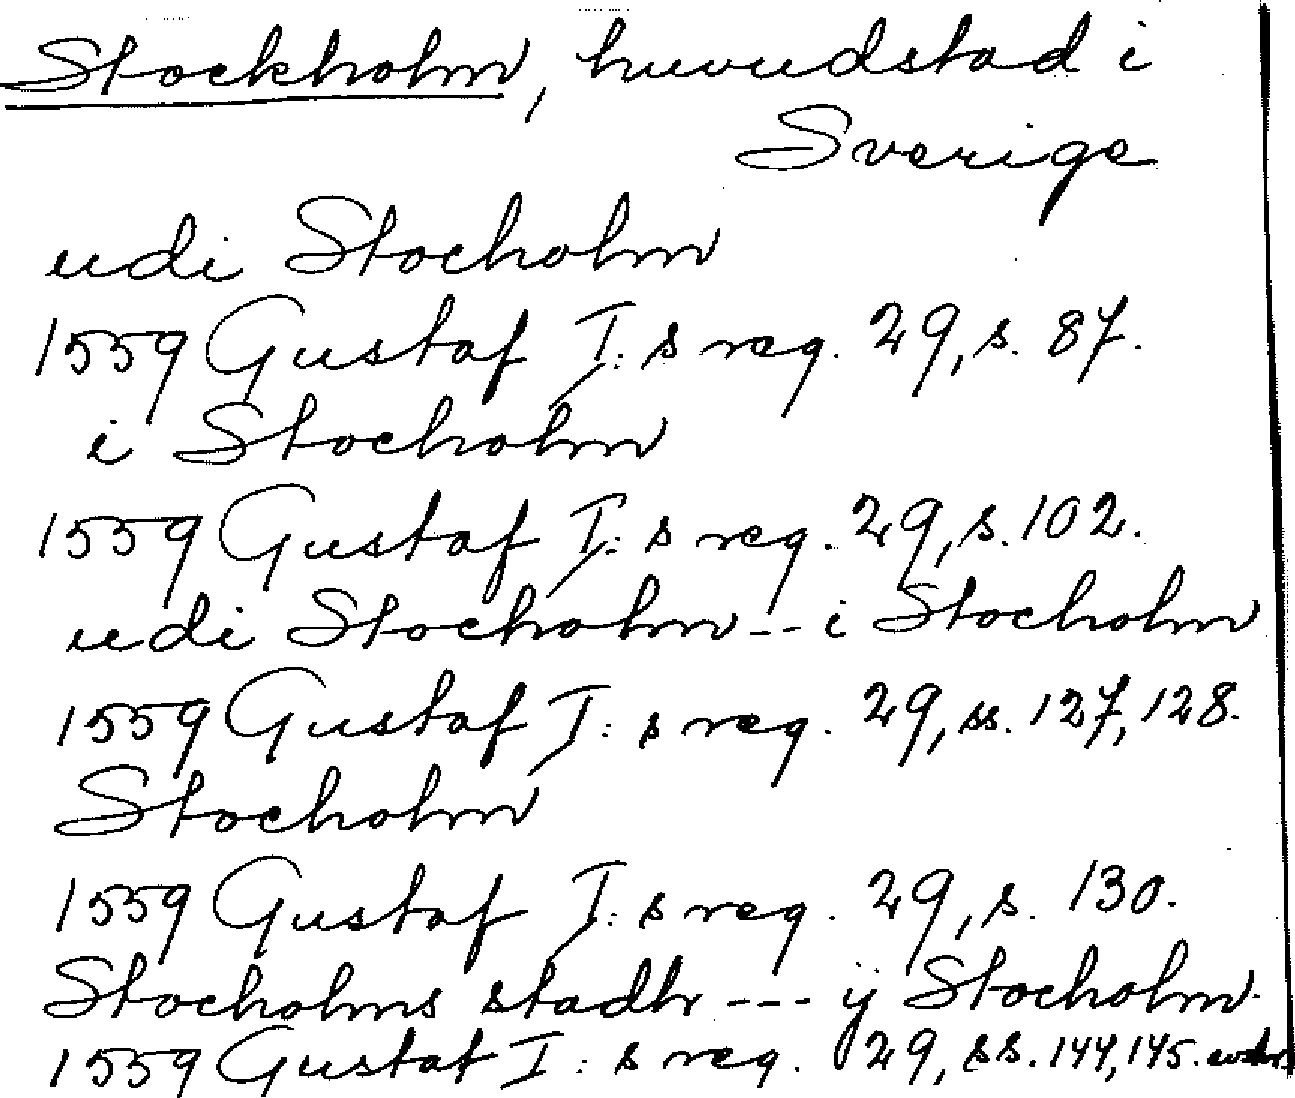 Stockholm, huvudstad i
Sverige
udi Stocholm
1559 Gustaf I:s reg. 29, s. 87.
i Stocholm
1559 Gustaf I:s reg. 29, s. 102.
udi Stocholm -- i Stocholm
1559 Gustaf I:s reg. 29, ss. 127, 128.
Stocholm
1559 Gustaf I:s reg. 29, s. 130.
Stocholms stadh --- ÿ Stocholm
1559 Gustaf I:s reg. 29, ss. 144, 145.